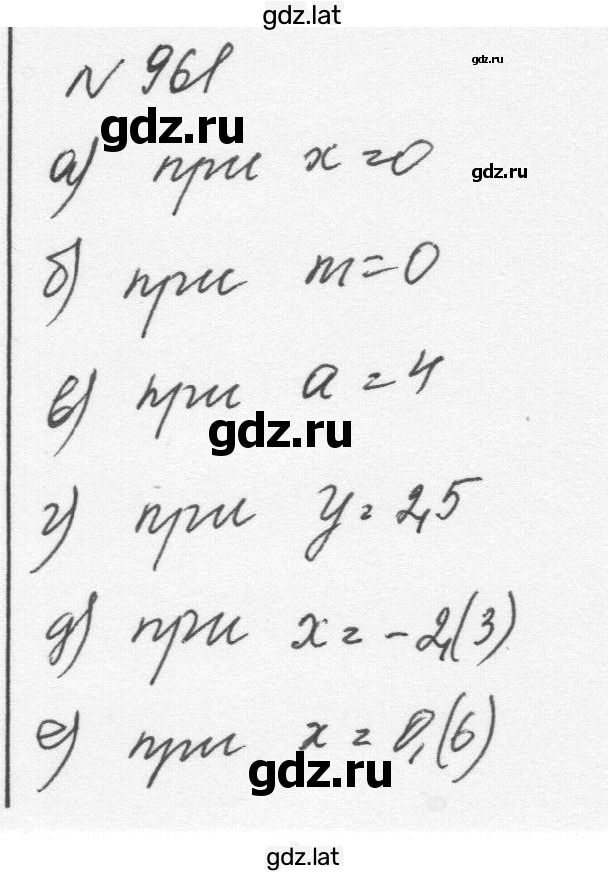 gdz.lat
N 961
gdz.ru
gdz.ru
а) при x = 0
gdz.ru
б) при m = 0
в) при a = 4
gdz.ru
г) при y = 2,5
д) при x = -2,(3)
е) при x = 0,(6)
gdz.ru
gdz.lat